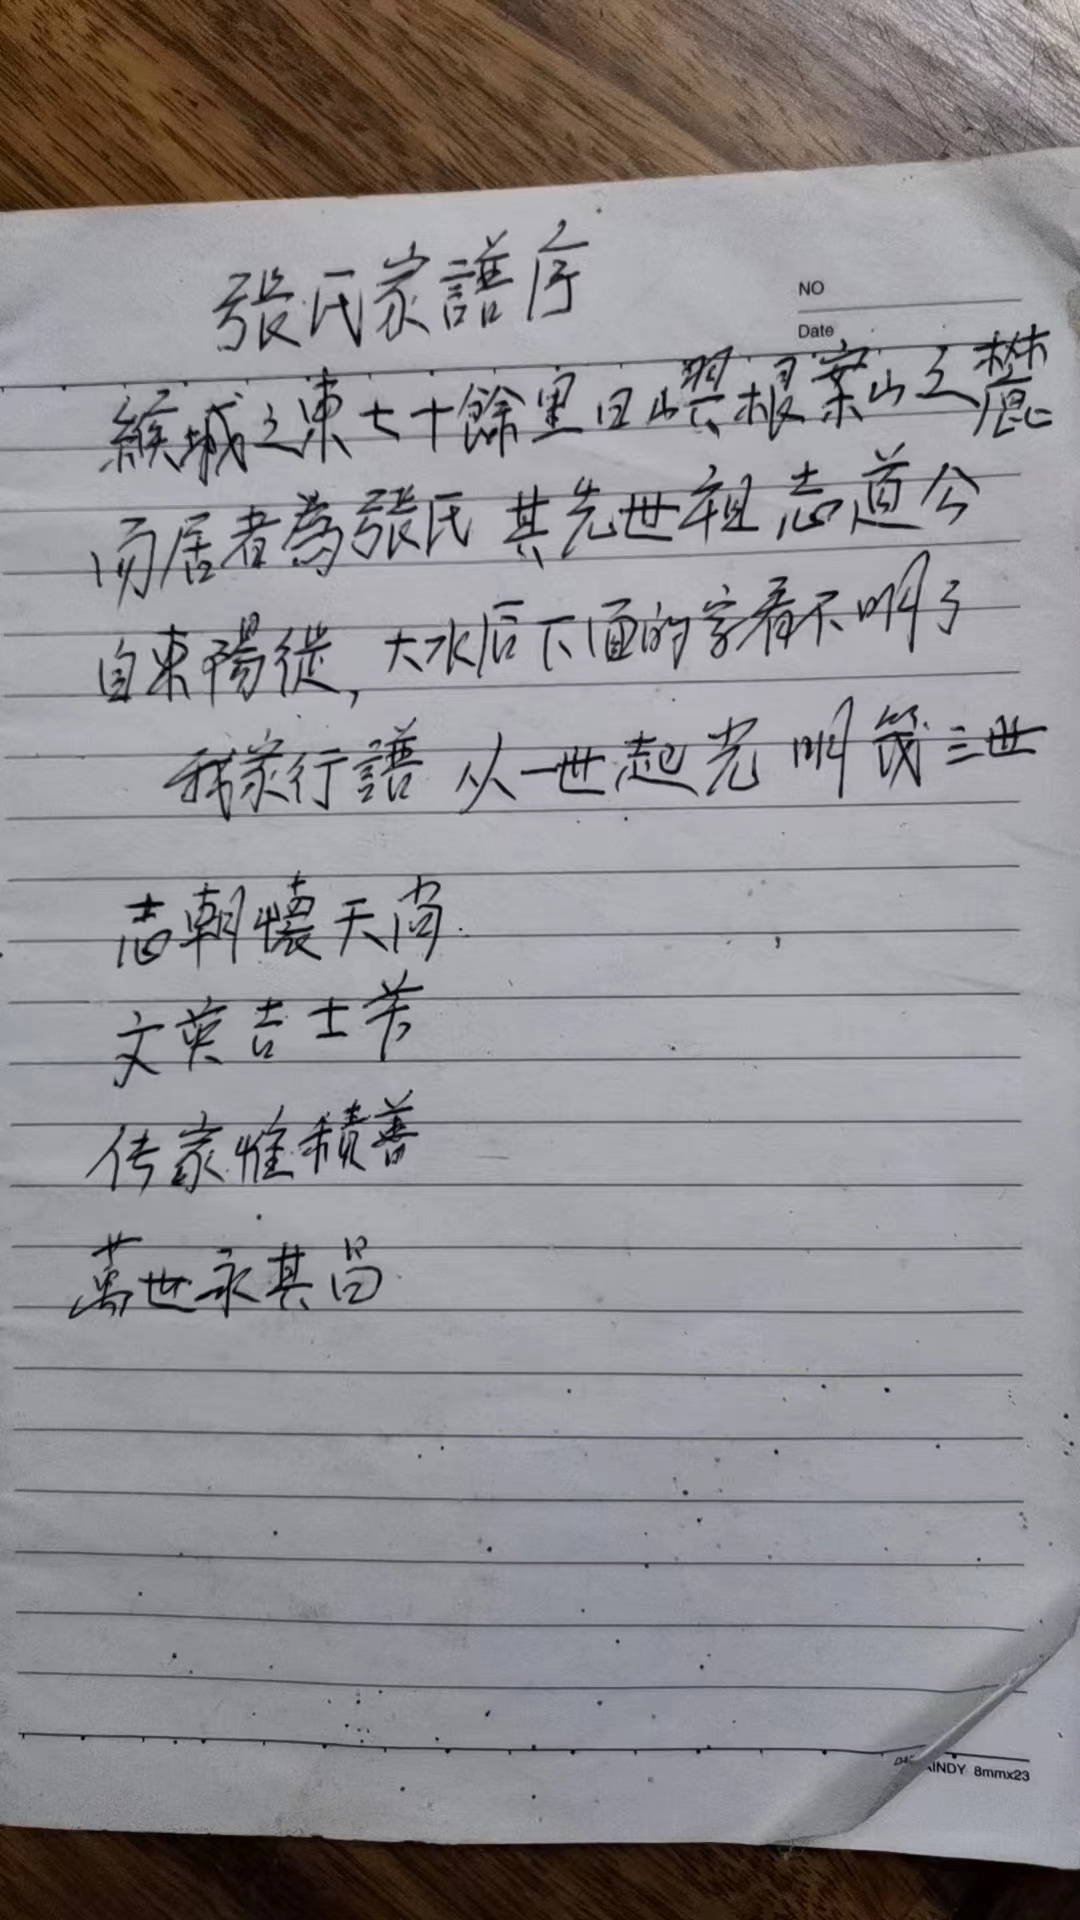 張氏家譜序
NO
Date
緱城之東七十餘里曰 根案山之麓
而居者為張氏其先世祖志道公
自東陽徙,大水后下面的字看不明了
我家行譜从一世起光明 三世
志朝懷天尚
文英吉士
传家惟積善
萬世永其昌
INDY 8mmx23